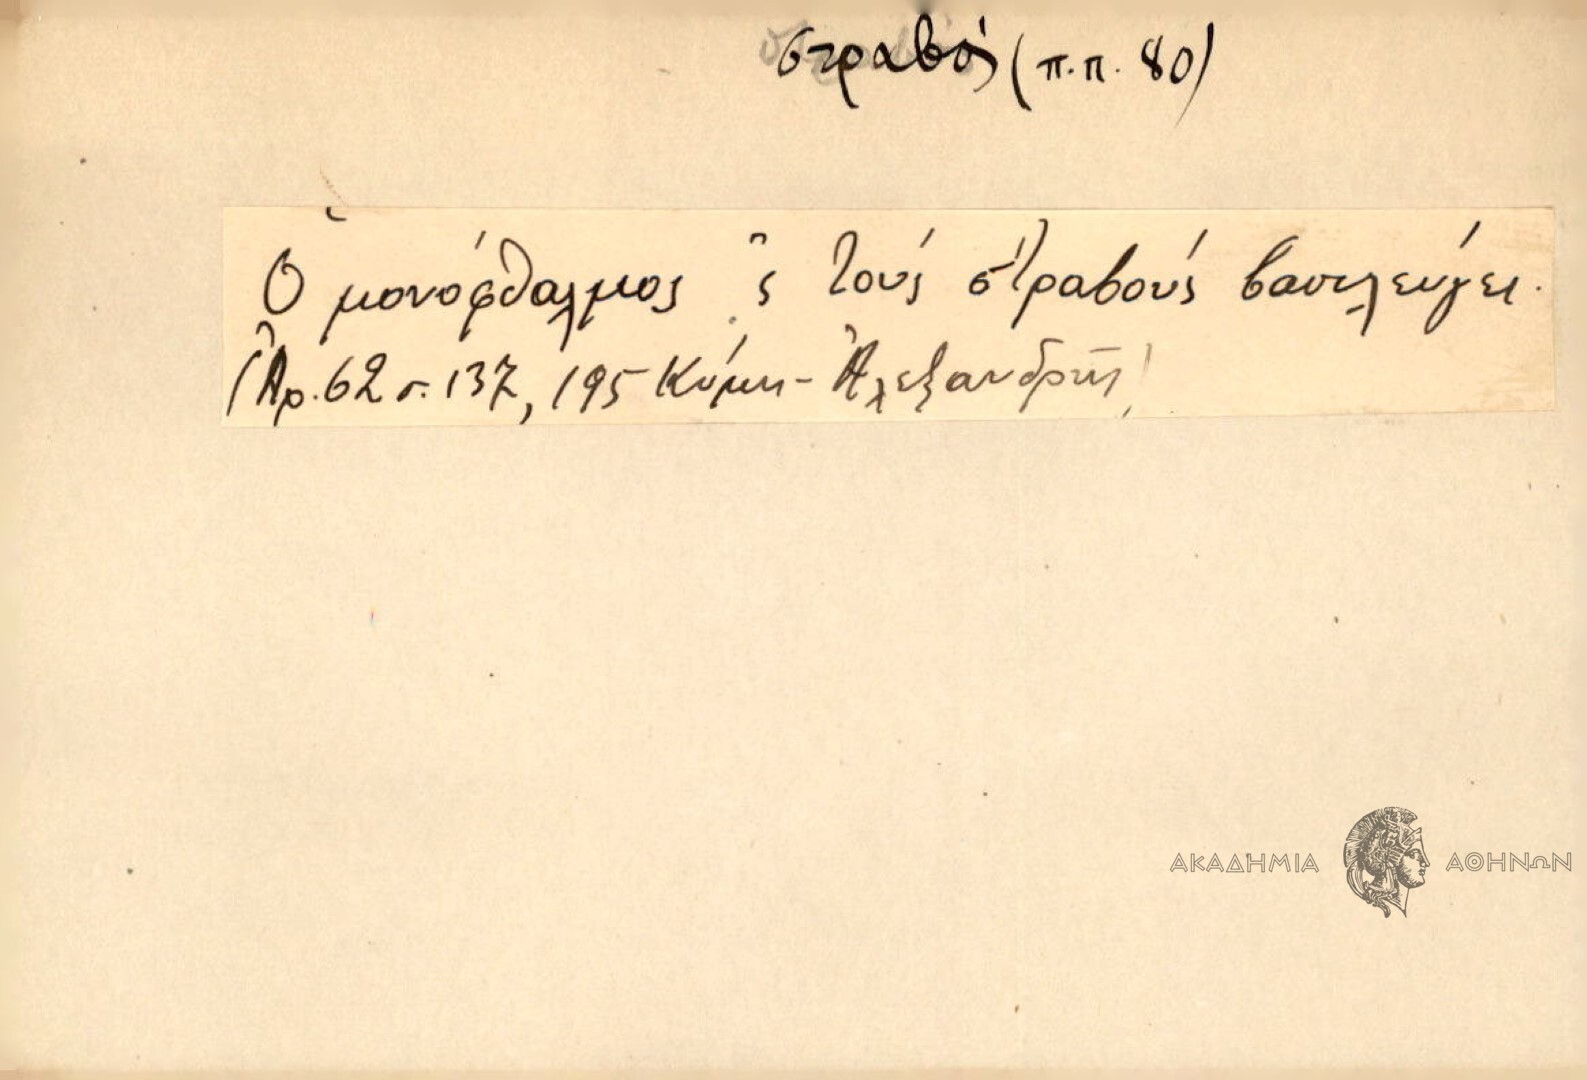 στραβός (π.π. 80)
Ὁ μονόφθαλμος 'ς τούς στραβούς βασιλεύγει.
(Ἀρ. 62 σ. 137, 195 Κύμη - Ἀλεξανδρῆς)
ΑΚΑΔΗΜΙΑ ΑΘΗΝΩΝ